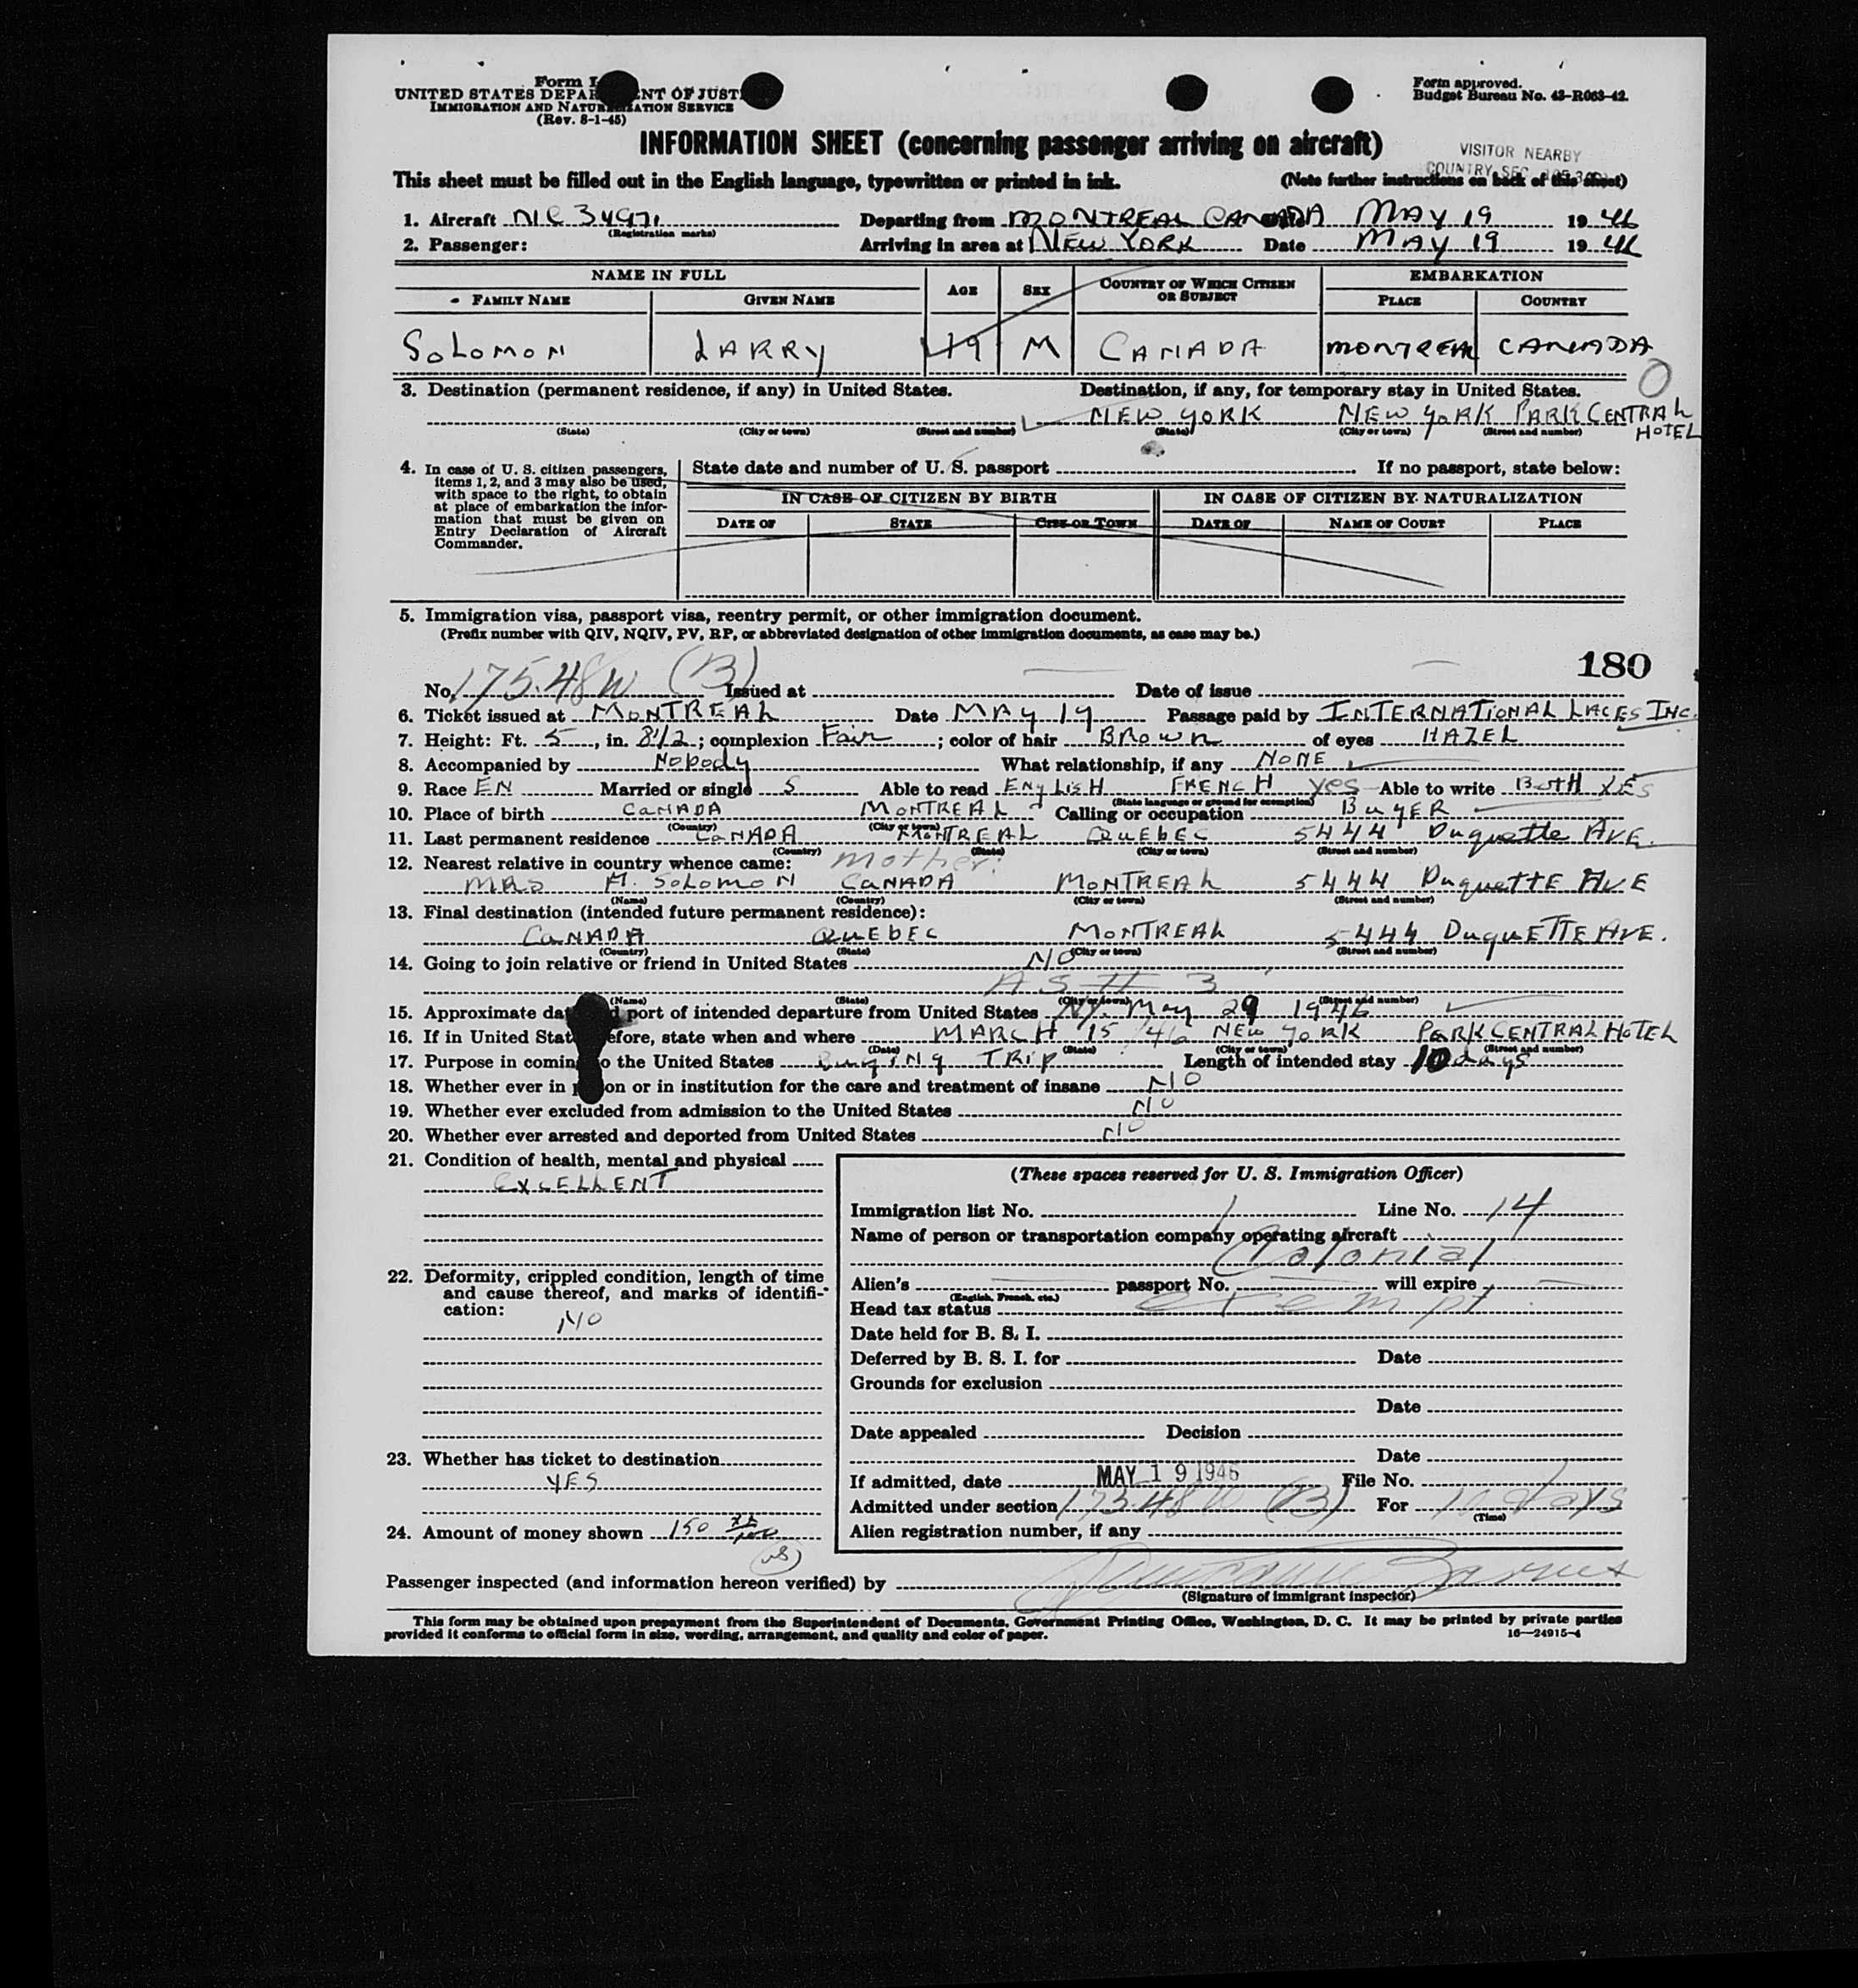 Form I
UNITED STATES DEPAR NT OF JUST
IMMIGRATION AND NATURALIZATION SERVICE
(Rev. 8-1-45)
Form approved.
Budget Bureau No. 43-R063-42.
INFORMATION SHEET (concerning passenger arriving on aircraft)
VISITOR NEARBY
COUNTRY SEC.
This sheet must be filled out in the English language, typewritten or printed in ink. (Note further instructions on back of this sheet)
1. Aircraft NC 34971 Departing from MONTREAL CANADA MAY 19 1946
(Registration marks)
2. Passenger: Arriving in area at NEW YORK Date MAY 19 1946
NAME IN FULL AGE SEX COUNTRY OF WHICH CITIZEN OR SUBJECT EMBARKATION
FAMILY NAME GIVEN NAME PLACE COUNTRY
SOLOMON LARRY 19 M CANADA MONTREAL CANADA
3. Destination (permanent residence, if any) in United States. Destination, if any, for temporary stay in United States.
NEW YORK NEW YORK PARK CENTRAL HOTEL
(State) (City or town) (Street and number) (State) (City or town) (Street and number)
4. In case of U. S. citizen passengers, items 1, 2, and 3 may also be used, with space to the right, to obtain at place of embarkation the information that must be given on Entry Declaration of Aircraft Commander.
State date and number of U. S. passport If no passport, state below:
IN CASE OF CITIZEN BY BIRTH IN CASE OF CITIZEN BY NATURALIZATION
DATE OF STATE CITY OR TOWN DATE OF NAME OF COURT PLACE
5. Immigration visa, passport visa, reentry permit, or other immigration document.
(Prefix number with QIV, NQIV, PV, RP, or abbreviated designation of other immigration documents, as case may be.)
180
No. 175.48 (B) Issued at Date of issue
6. Ticket issued at MONTREAL Date MAY 19 Passage paid by INTERNATIONAL LACES INC.
7. Height: Ft. 5, in. 8 1/2; complexion Fair; color of hair BROWN of eyes HAZEL
8. Accompanied by Nobody What relationship, if any NONE
9. Race EN Married or single S Able to read ENGLISH FRENCH yes Able to write BOTH YES
(State language or ground for exemption)
10. Place of birth CANADA MONTREAL Calling or occupation BUYER
(Country) (City or town)
11. Last permanent residence CANADA MONTREAL QUEBEC 5444 Duquette AVE.
(Country) (State) (City or town) (Street and number)
12. Nearest relative in country whence came: mother:
MRS H. SOLOMON CANADA MONTREAL 5444 DuquETTE AVE
(Name) (Country) (City or town) (Street and number)
13. Final destination (intended future permanent residence):
CANADA QUEBEC MONTREAL 5444 DuquETTE AVE.
(Country) (State) (City or town) (Street and number)
14. Going to join relative or friend in United States NO
AS # 3
(Name) (State) (City or town) (Street and number)
15. Approximate da port of intended departure from United States N.Y. May 29 1946
16. If in United Stat efore, state when and where MARCH 15/46 NEW YORK PARK CENTRAL HOTEL
(Date) (State) (City or town) (Street and number)
17. Purpose in coming to the United States BuyING TRIP Length of intended stay 10 days
18. Whether ever in p on or in institution for the care and treatment of insane NO
19. Whether ever excluded from admission to the United States NO
20. Whether ever arrested and deported from United States NO
21. Condition of health, mental and physical
EXCELLENT
22. Deformity, crippled condition, length of time and cause thereof, and marks of identification:
NO
23. Whether has ticket to destination
YES
24. Amount of money shown 150 xx/100
(US)
(These spaces reserved for U. S. Immigration Officer)
Immigration list No. 1 Line No. 14
Name of person or transportation company operating aircraft
Colonial
Alien's passport No. will expire
(English, French, etc.)
Head tax status exempt
Date held for B. S. I.
Deferred by B. S. I. for Date
Grounds for exclusion
Date
Date appealed Decision
Date
If admitted, date MAY 19 1946 File No.
Admitted under section 175.48 (B) For 10 days
(Time)
Alien registration number, if any
Passenger inspected (and information hereon verified) by
(Signature of immigrant inspector)
This form may be obtained upon prepayment from the Superintendent of Documents, Government Printing Office, Washington, D. C. It may be printed by private parties
provided it conforms to official form in size, wording, arrangement, and quality and color of paper. 16—24915-4